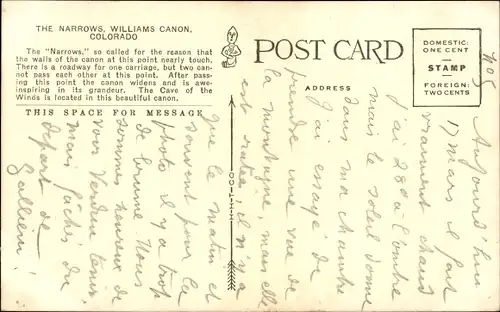 THE NARROWS, WILLIAMS CANON,
COLORADO
The "Narrows," so called for the reason that
the walls of the canon at this point nearly touch.
There is a roadway for one carriage, but two can-
not pass each other at this point. After pass-
ing this point the canon widens and is awe-
inspiring in its grandeur. The Cave of the
Winds is located in this beautiful canon.
THIS SPACE FOR MESSAGE
POST CARD
ADDRESS
DOMESTIC:
ONE CENT
STAMP
FOREIGN:
TWO CENTS
C.T.
Aujourd'hui
17 mars il fait
vraiment chaud
j'ai 28º à l'ombre
mais le soleil donne
dans ma chambre
J'ai essayé de
prendre une vue de
la montagne, mais elle
est ratée, il n'y a
que le matin et
souvent pour la
photo il y a trop
de brume Nous
sommes heureux de
voir Verdun tenir
mais fâchés du
départ de
Gallieni!